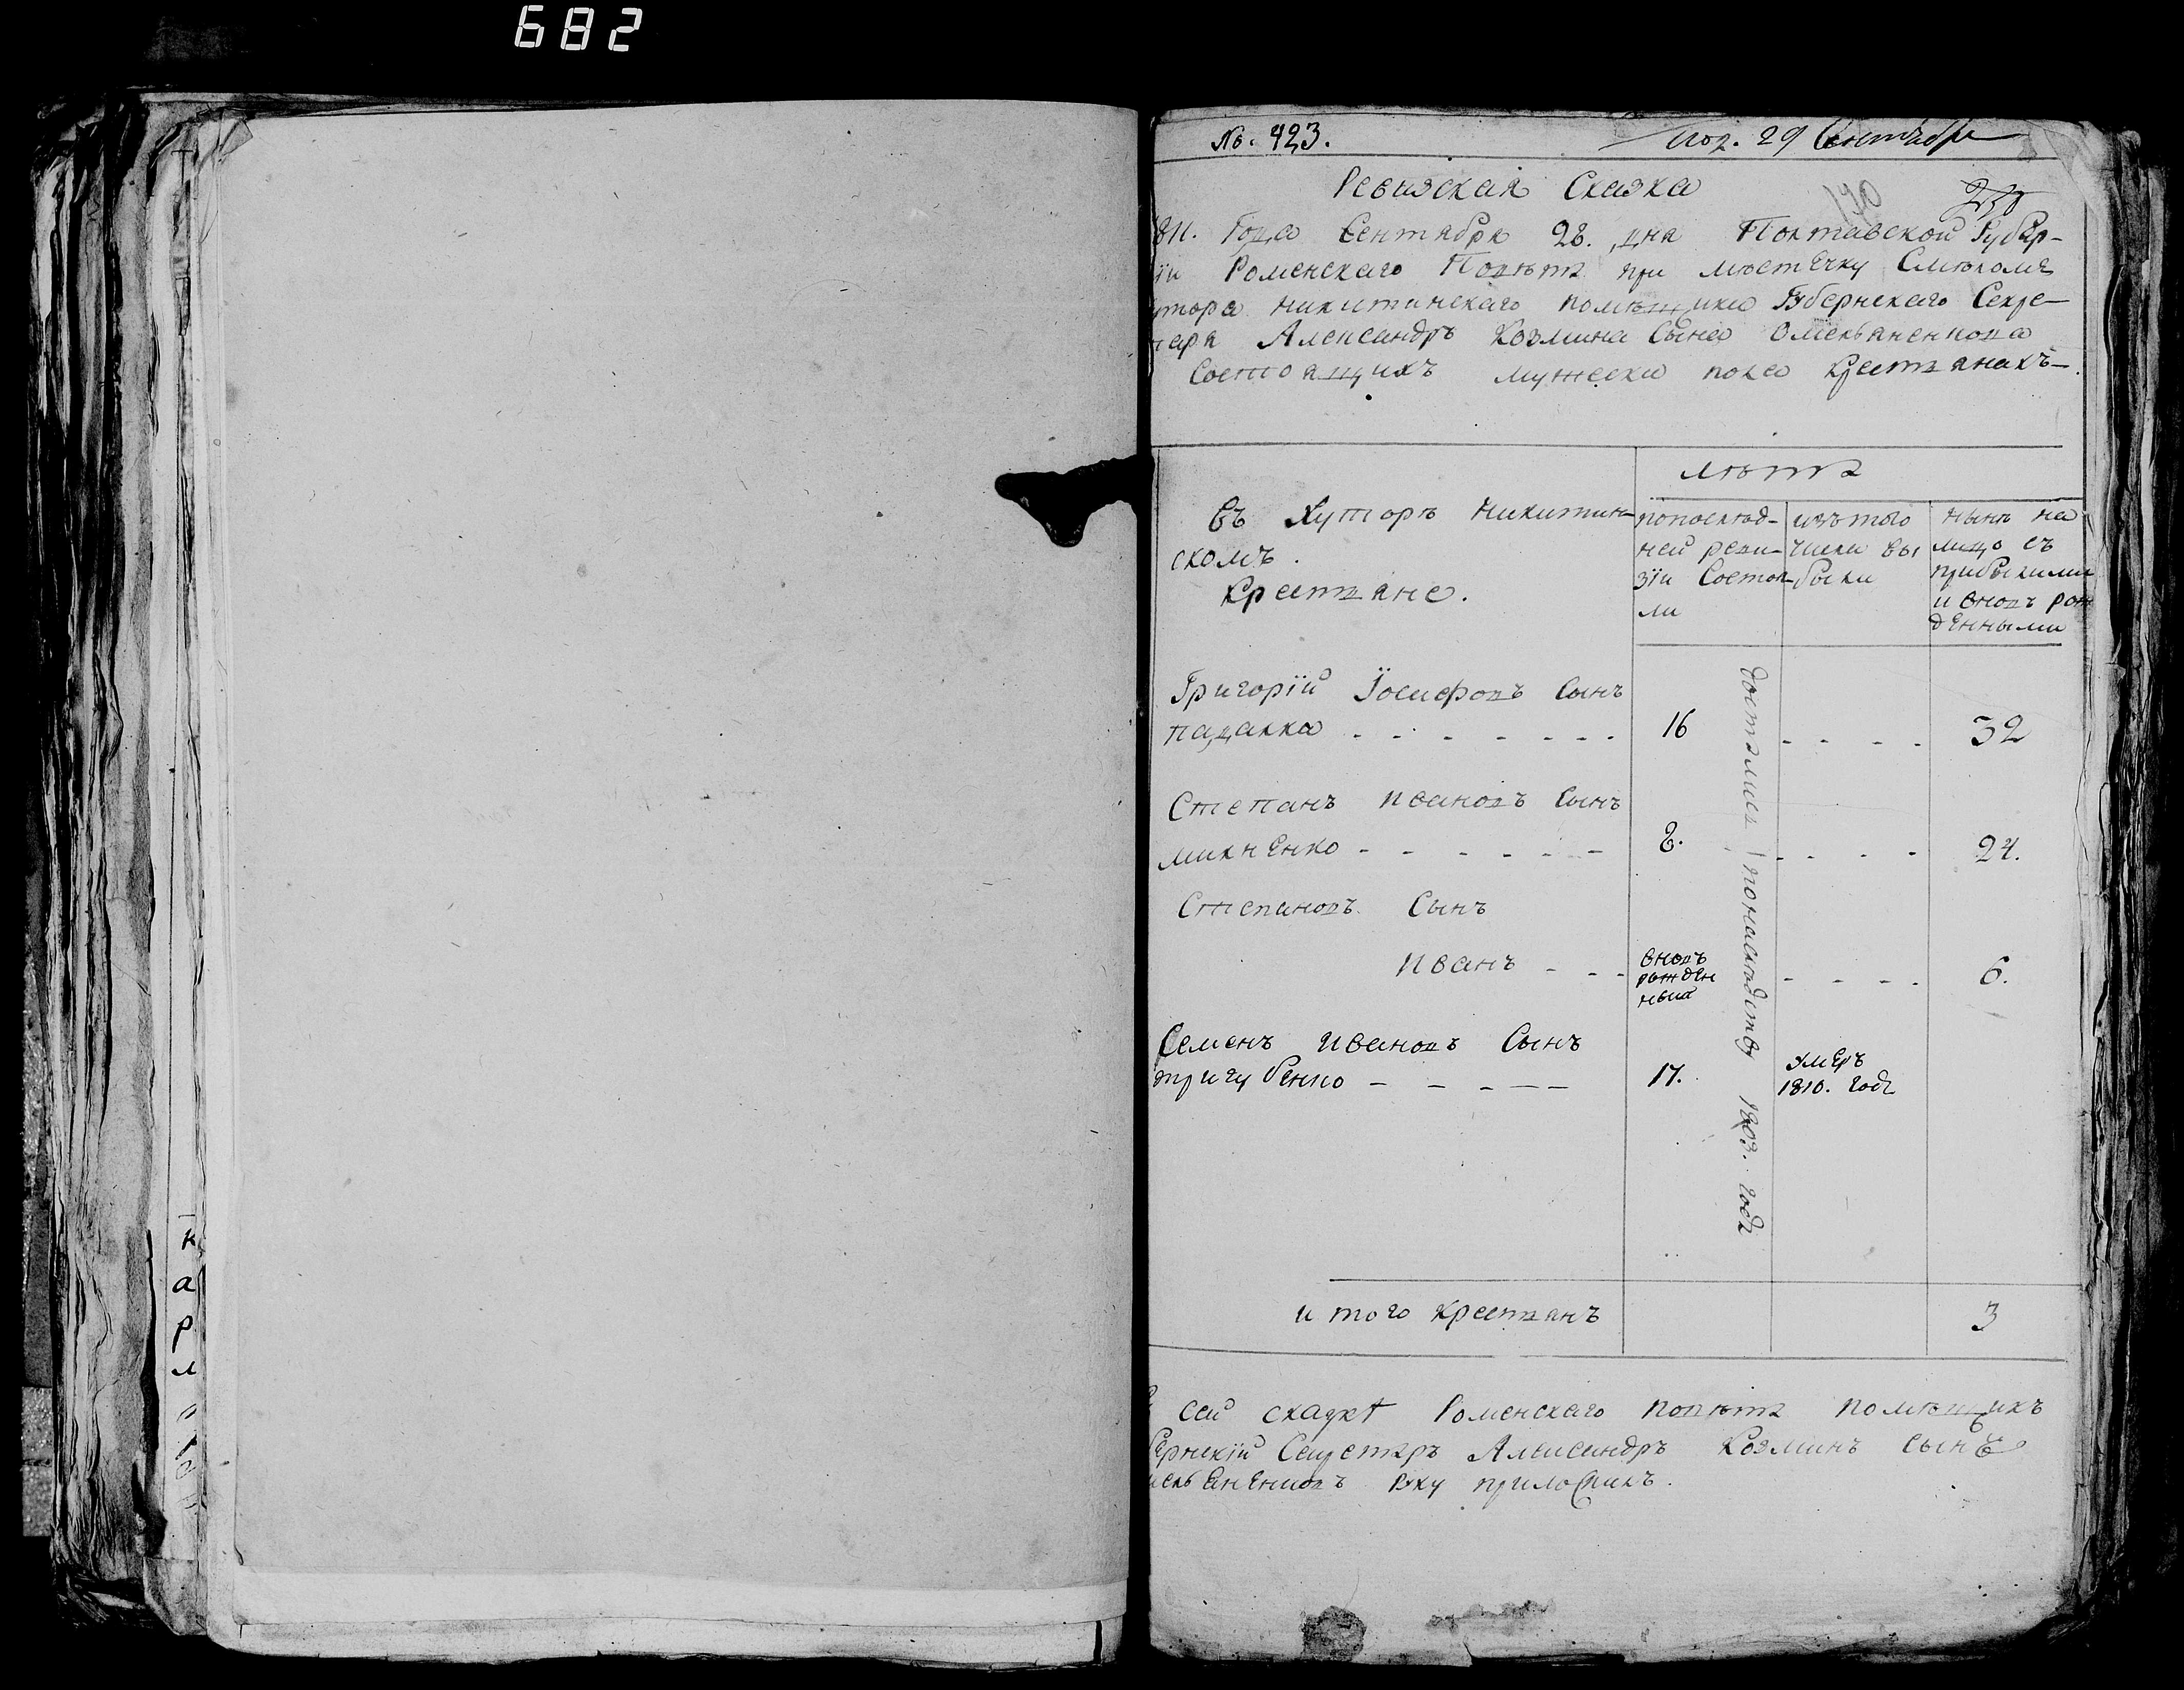 682
№. 423.
пол. 29 Сентября
Ревизская Сказка
190
250
811. Года Сентября 28. дня Полтавской Губер-
iи Роменскаго Повѣта при мѣстечку Смѣломъ
утора Никитинскаго помѣщика Губернскаго Секре-
таря Александръ Козмина Сына Омельяненкова
Состоящихъ мужеска пола Крестянахъ-
лѣта
Въ Хуторѣ Никитин-
скомъ.
Крестяне.
попослѣд-
ней реви-
зiи Состоя-
ли
изътого
числа вы
были
нынѣ на
лицо съ
прибылими
и вновъ рож
денными
Григорiй Iосифовъ Сынъ
падалка - - - - - - - 16 - - - - 32
Степанъ Ивановъ Сынъ
михненко - - - - - - - 8. - - - - 24.
Степановъ Сынъ
Иванъ - - - вновъ
рожден
ный - - - - 6.
Семенъ Ивановъ Сынъ
тригубенко - - - - - 17. умеръ
1810. года
досталися понаслѣдству 1803. года
и того крестянъ 3
сей сказкѣ Роменскаго повѣта помѣщикъ
бернскiй Секретаръ Александръ Козминъ сынъ
мельяненковъ руку приложилъ.
к
а
р
л
о